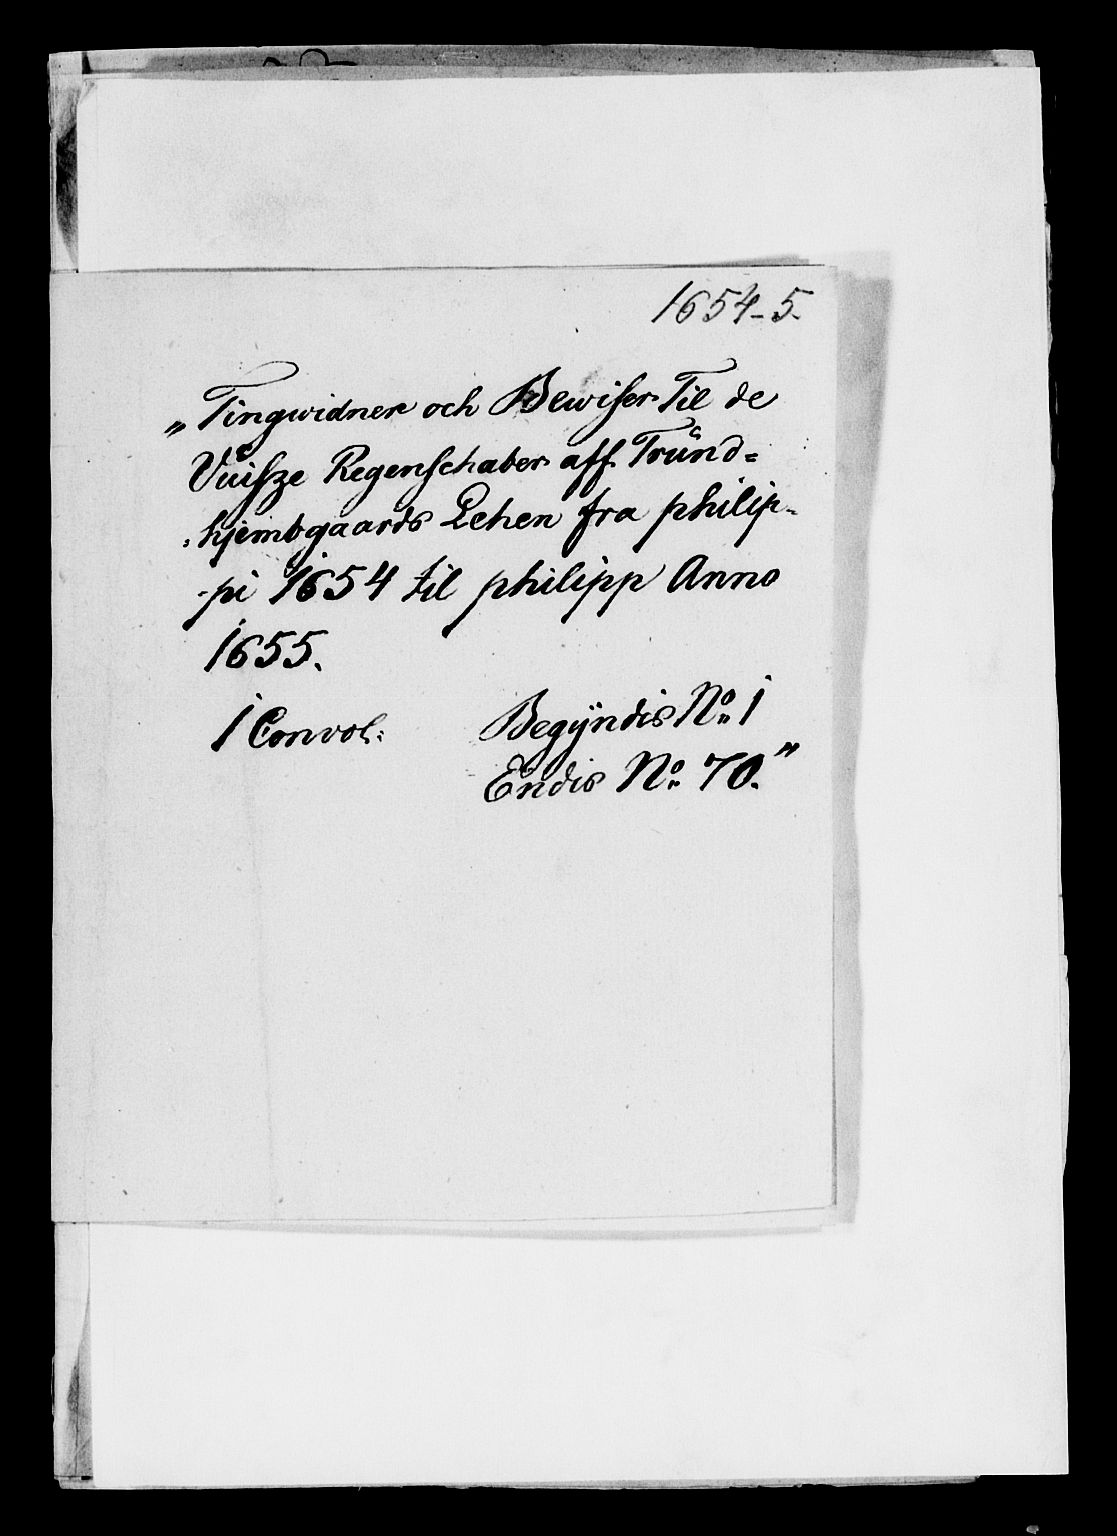 1654-5.
„Tingwidner och Bewiser Til de
Vuisze Regenschaber aff Tründ=
=hjembgaards Lehen fra philip-
-pi 1654 til philipp Anno
1655.
1 Convol:
Begÿndis No. 1
Endis No. 70.”